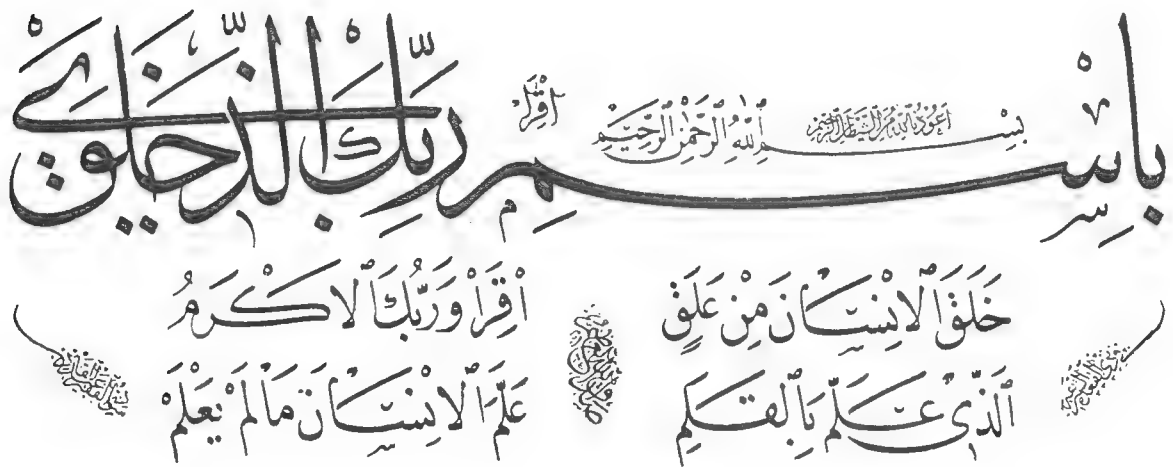 أعوذ بالله من الشيطان الرجيم
بِسْمِ ٱللّٰهِ ٱلرَّحْمٰنِ ٱلرَّحِيمِ
اقْرَأْ
بِاسْمِ رَبِّكَ الَّذِي خَلَقَ
خَلَقَ ٱلْاِنْسَانَ مِنْ عَلَقٍ
اقْرَأْ وَرَبُّكَ ٱلْاَكْرَمُ
ٱلَّذِي عَلَّمَ بِٱلْقَلَمِ
عَلَّمَ ٱلْاِنْسَانَ مَا لَمْ يَعْلَمْ